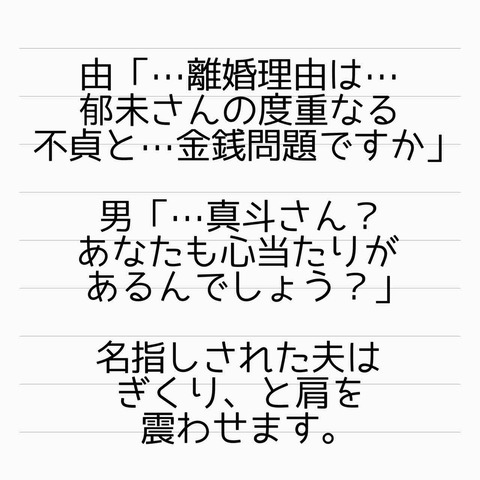 由「…離婚理由は…
郁未さんの度重なる
不貞と…金銭問題ですか」
男「…真斗さん？
あなたも心当たりが
あるんでしょう？」
名指しされた夫は
ぎくり、と肩を
震わせます。